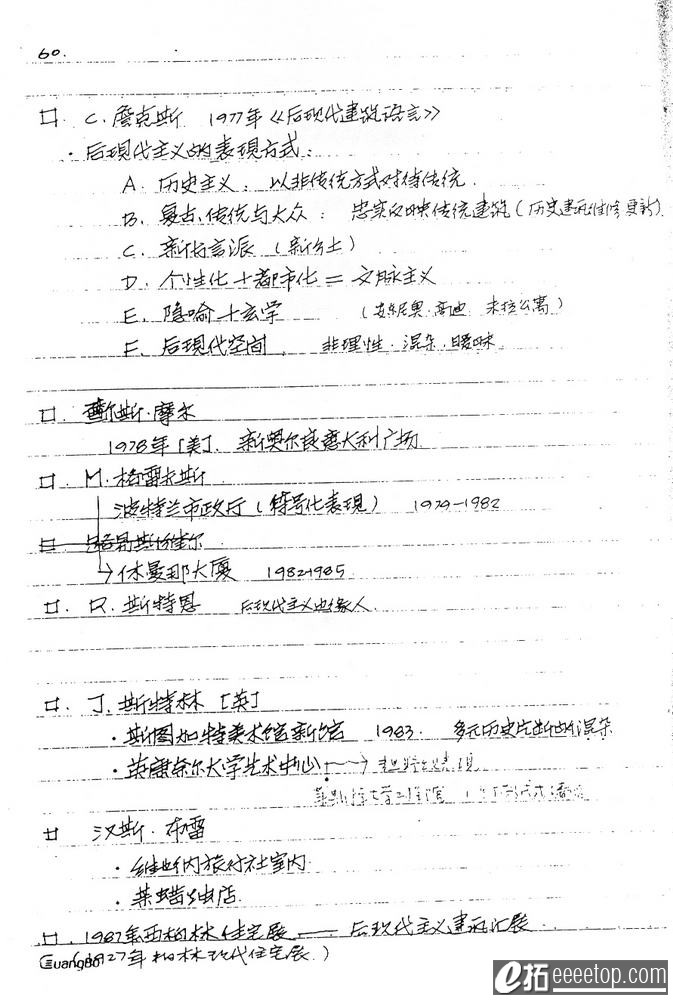 60.
口 C.詹克斯 1977年《后现代建筑语言》
·后现代主义的表现方式:
A. 历史主义: 以非传统方式对待传统.
B. 复古.传统与大众: 忠实反映传统建筑(历史建筑维修更新)
C. 新方言派 (新乡土)
D. 个性化+都市化=文脉主义
E. 隐喻+玄学 (安东尼奥·高迪 米拉公寓)
F. 后现代空间. 非理性·混杂·暧昧.
口. 查尔斯·摩尔
1978年[美]. 新奥尔良意大利广场.
口. M.格雷夫斯
波特兰市政厅(符号化表现) 1979-1982
→休曼那大厦 1982-1985.
口. R.斯特恩 后现代主义边缘人.
口. J.斯特林 [英]
·斯图加特美术馆新馆 1983. 多元历史片断的混杂
·英康奈尔大学艺术中心
汉斯·布雷
·维也纳旅行社室内.
·莱蜡烛店.
口. 1987年西柏林住宅展 —— 后现代主义建筑汇展.
(1927年柏林现代住宅展.)
EuangBo
e拓 eeeetop.com